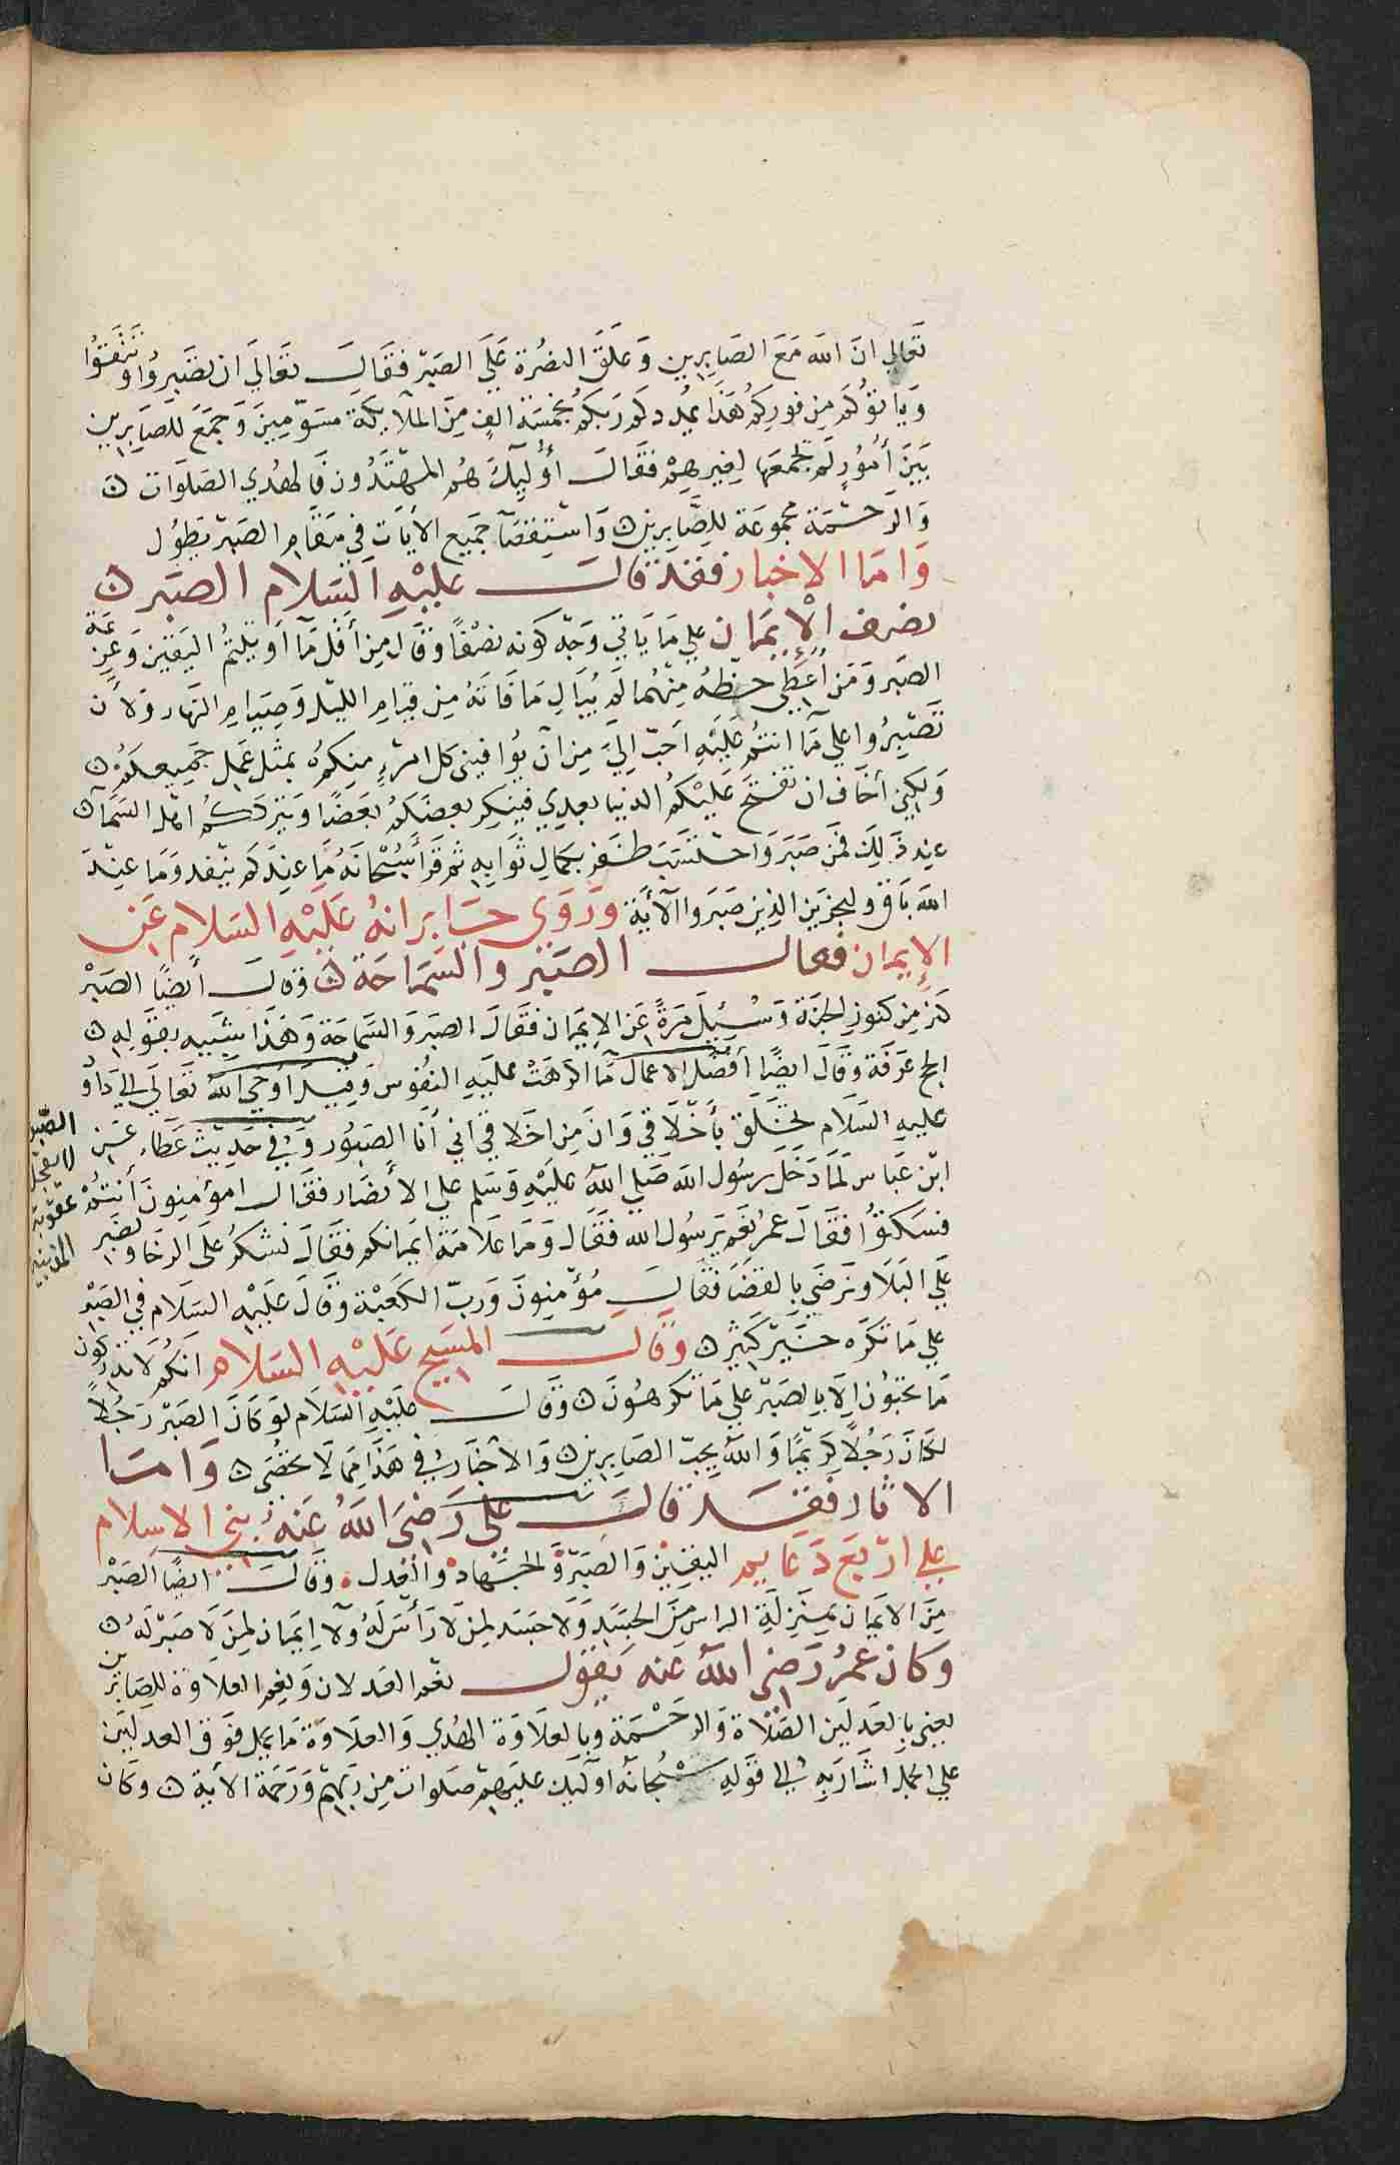 تعالي ان الله مع الصابرين وعلق النصرة علي الصبر فقال تعالي ان تصبروا وتتقوا
وياتوكم من فوركم هذا يمددكم ربكم بخمسة الف من الملايكة مسومين وجمع للصابرين
بين أمور لم تجمعها لغيرهم فقال أوليك هم المهتدون فالهدي الصلوات
والرحمة مجموعة للصابرين واستقصا جميع الأيات في مقام الصبر يطول
واما الاخبار فقد قال عليه السلام الصبر
نصف الإيمان علي ما ياتي وجه كونه نصفا وقال من أقل ما اوتيتم اليقين وعزيمة
الصبر ومن أعطي حظه منهما لم يبال ما فاته من قيام الليل وصيام النهار ولأن
تصبروا علي ما انتم عليه احب الي من ان يوافيني كل امرء منكم بمثل عمل جميعكم
ولكني أخاف ان تفتح عليكم الدنيا بعدي فينكر بعضكم بعضا وينكركم اهل السماء
عند ذلك فمن صبر واحتسب ظفر بكمال ثوابه ثم قرأ سبحانه ما عندكم ينفد وما عند
الله باق ولنجزين الذين صبروا الآية وروي جابر انه عليه السلام عن
الإيمان فقال الصبر والسماحة وقال أيضا الصبر
كنز من كنوز الجنة وسئيل مرة عن الايمان فقال الصبر والسماحة وهذا يشبه بقوله
الحج عرفة وقال ايضا أفضل الاعمال ما اكرهت عليه النفوس وقيل أوحي الله تعالي الي داود
عليه السلام تخلق بأخلاقي وان من اخلاقي اني أنا الصبور وفي حديث عطاء عن
ابن عباس لما دخل رسول الله صلي الله عليه وسلم علي الأنصار فقال امؤمنون أنتم
فسكتوا فقال عمر نعم يرسول الله فقال وما علامة ايمانكم فقال نشكر على الرخا ونصبر
علي البلا ونرضي بالقضا فقال مؤمنون ورب الكعبة وقال عليه السلام في الصبر
علي ما تكره خير كثير وقال المسيح عليه السلام انكم لا تدركون
ما تحبون الا بالصبر علي ما تكرهون وقال عليه السلام لو كان الصبر رجلا
لكان رجلا كريما والله يحب الصابرين والأخبار في هذا مما لا تحصى واما
الاثار فقد قال علي رضي الله عنه بني الاسلام
علي اربع دعايم اليقين والصبر والجهاد والعدل وقال ايضا الصبر
من الايمان بمنزلة الراس من الجسد ولا جسد لمن لا رأس له ولا إيمان لمن لا صبر له
وكان عمر رضي الله عنه يقول نعم العدلان ونعم العلاوة للصابرين
يعني بالعدلين الصلاة والرحمة وبالعلاوة الهدي والعلاوة ما يحمل فوق العدلين
علي الحمل اشار به الي قوله سبحانه اوليك عليهم صلوات من ربهم ورحمة الأية وكان
الصبر
لا تعجل
عقوبة
المذنبين